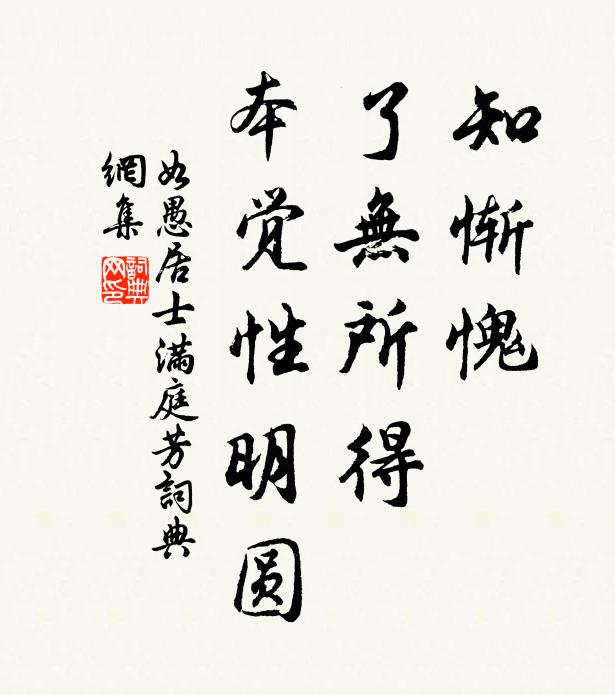 知惭愧
了無所得
本觉性明圆
如愚居士滿庭芳詞典
網集
詞典
网印